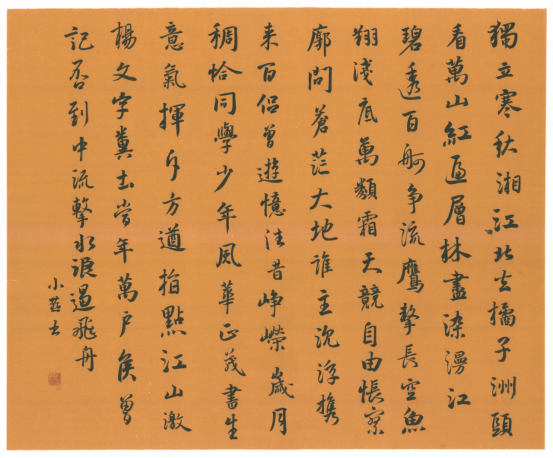 獨立寒秋湘江北去橘子洲頭
看萬山紅遍層林盡染漫江
碧透百舸争流鷹擊長空魚
翔淺底萬類霜天競自由悵寥
廓問蒼茫大地誰主沉浮携
来百侣曾遊憶往昔崢嶸歲月
稠恰同學少年風華正茂書生
意氣揮斥方遒指點江山激
揚文字糞土當年萬戶侯曾
記否到中流擊水浪遏飛舟
小